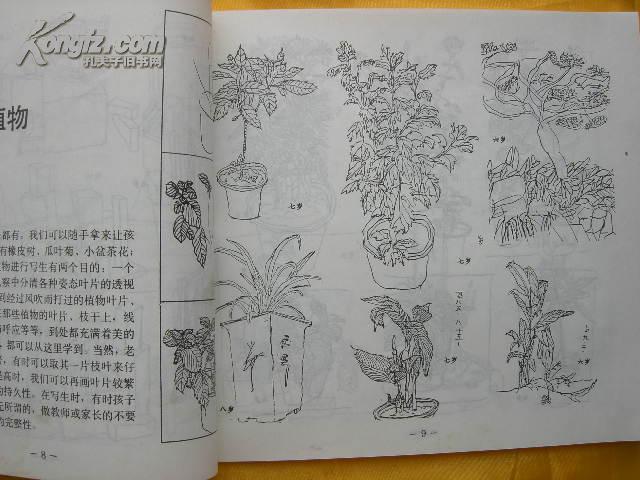 Kongfz.com
孔夫子旧书网
植物
都有，我们可以随手拿来让孩
有橡皮树、瓜叶菊、小盆茶花；
物进行写生有两个目的：一个
察中分清各种姿态叶片的透视
到经过风吹雨打过的植物叶片，
那些植物的叶片，枝干上，线
呼应等等，到处都充满着美的
，都可以从这里学到。当然，老
，有时可以取其一片枝叶来仔
高时，我们可以再画叶片较繁
的持久性。在写生时，有时孩子
无所谓的，做教师或家长的不要
的完整性。
—8—
七岁
七岁
六岁
八岁
七岁
六岁
—9—